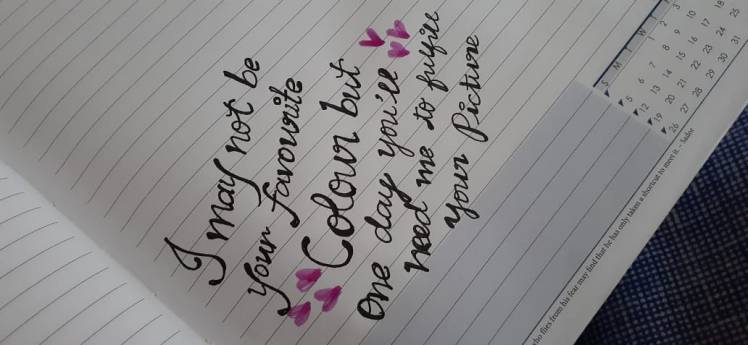 I may not be
your favourite
Colour but
One day you'll
need me to fulfill
your Picture
S M T W
1 2 3
5 6 7 8 9 10
12 13 14 15 16 17 18
19 20 21 22 23 24 25
26 27 28 29 30 31
flies from his fear may find that he has only taken a shortcut to meet it. -